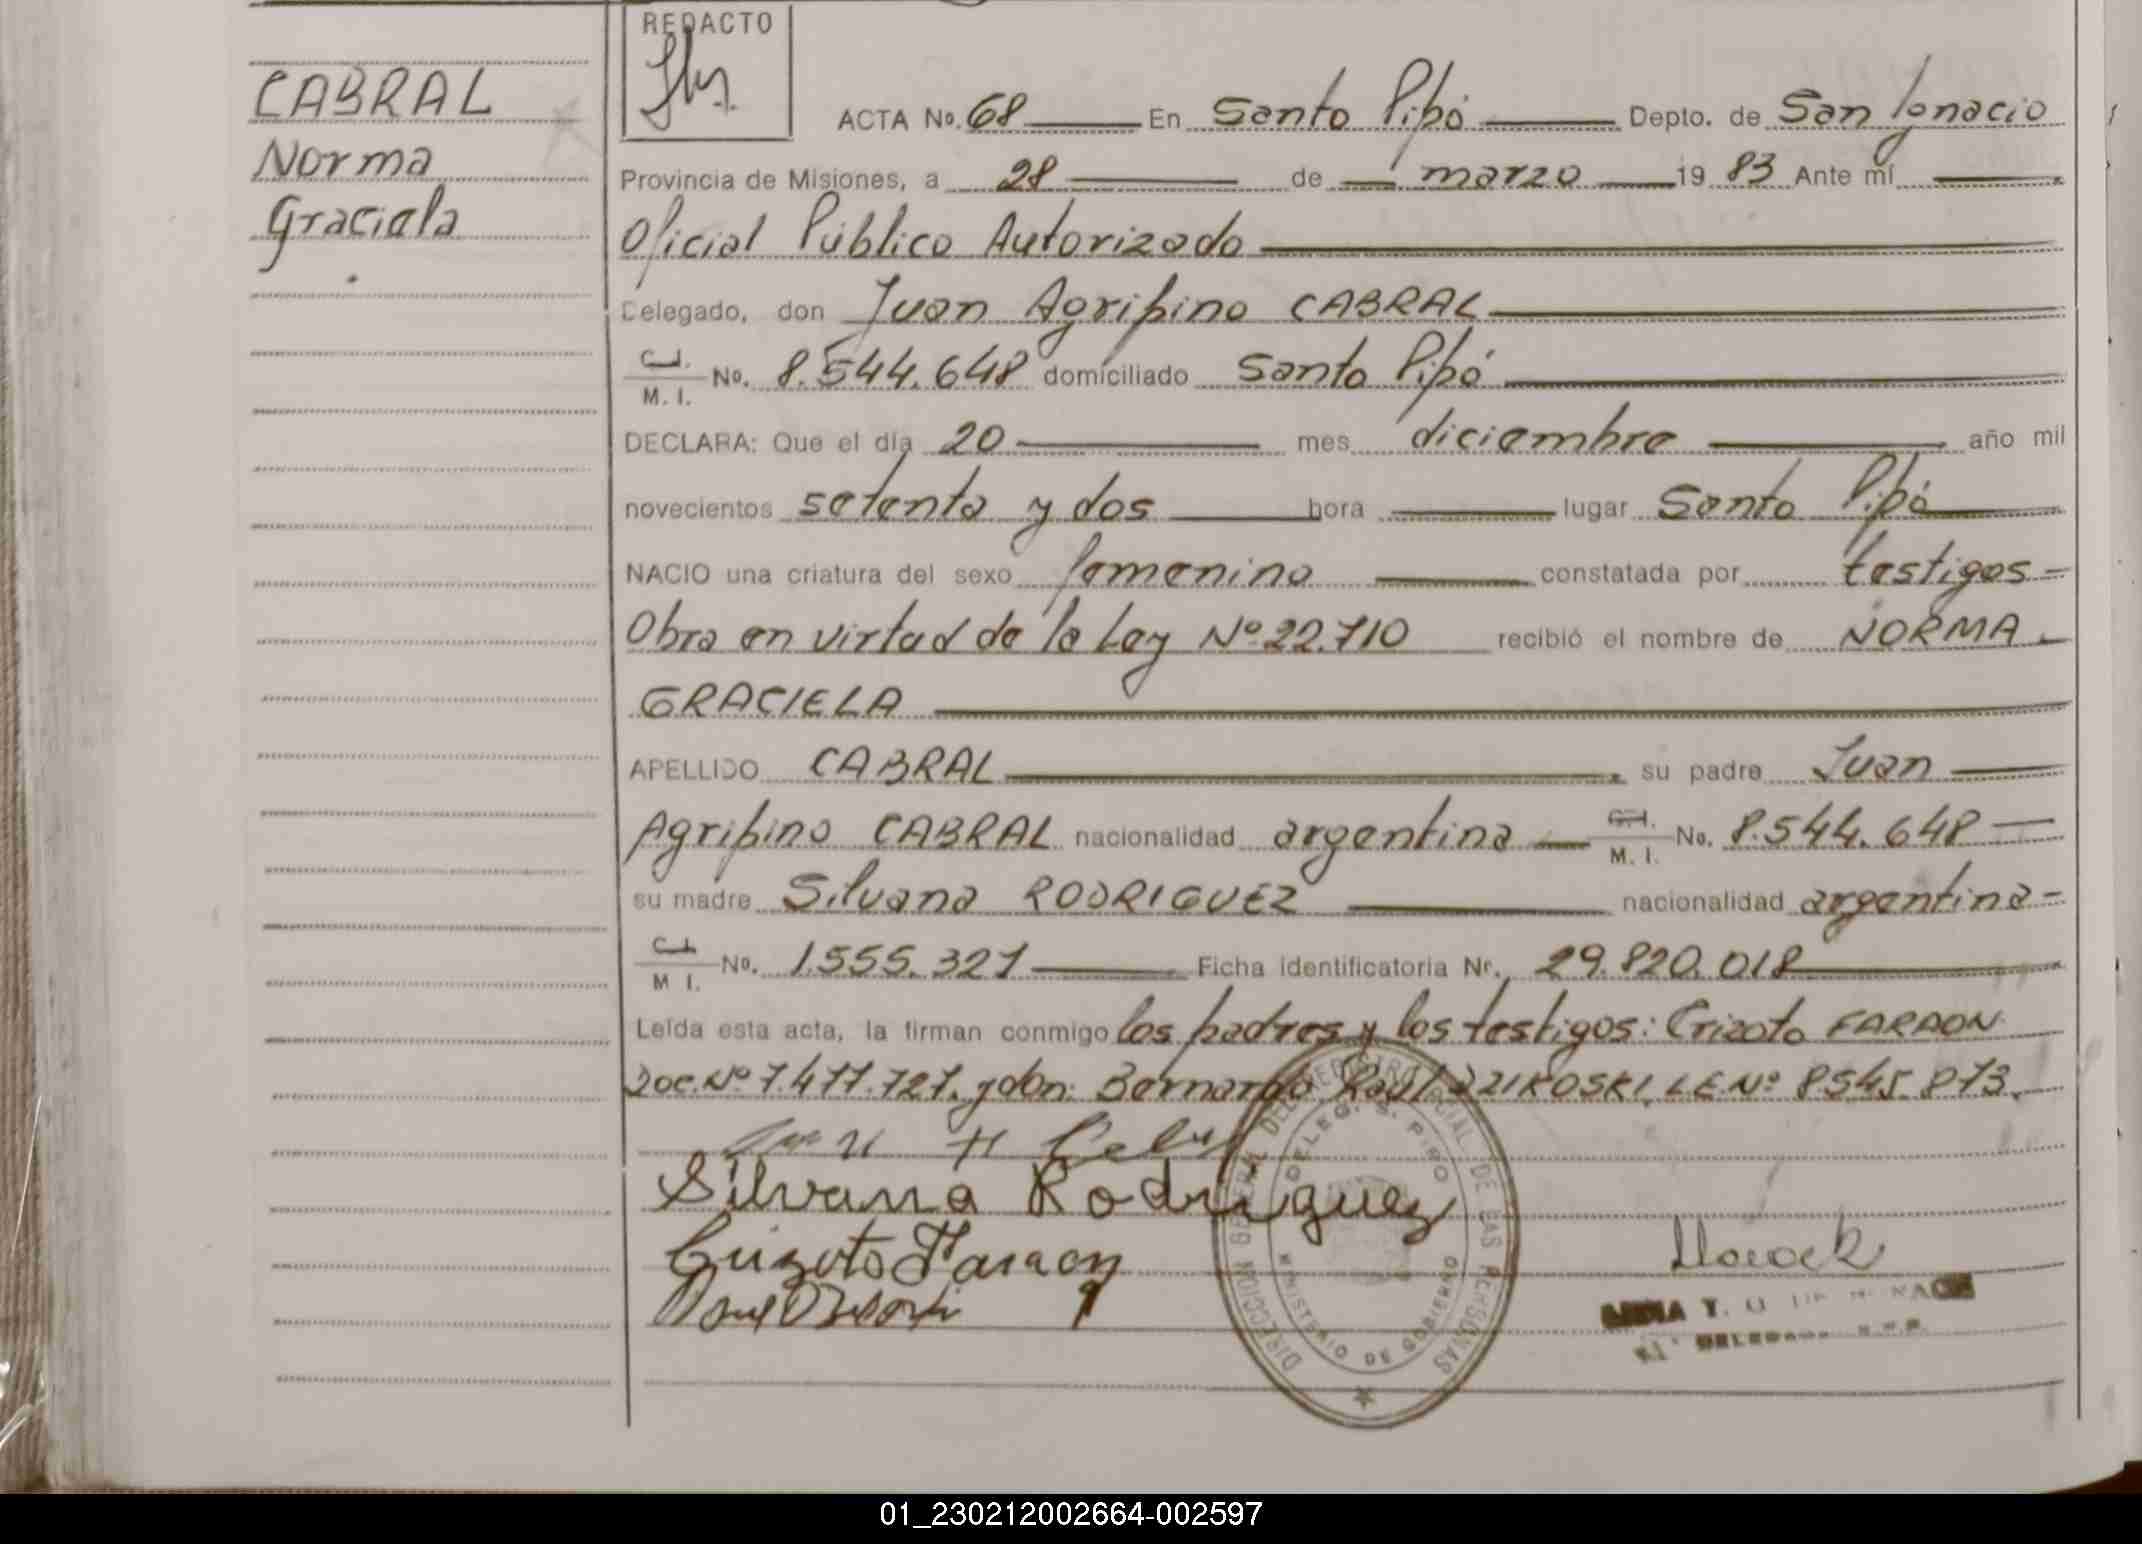 CABRAL
Norma
Graciela
REDACTO
ACTA No. 68 En Santo Pipó Depto. de San Ignacio
Provincia de Misiones, a 28 de marzo 19 83 Ante mí
Oficial Público Autorizado
Delegado, don Juan Agripino CABRAL
C.I. M. I. No. 8.544.648 domiciliado Santo Pipó
DECLARA: Que el día 20 mes diciembre año mil
novecientos setenta y dos hora lugar Santo Pipó
NACIO una criatura del sexo femenino constatada por testigos
Obra en virtud de la Ley Nº 22.710 recibió el nombre de NORMA
GRACIELA
APELLIDO CABRAL su padre Juan
Agripino CABRAL nacionalidad argentina C.I. M. I. No. 8.544.648
su madre Silvana RODRIGUEZ nacionalidad argentina
C.I. M I. No. 1.555.321 Ficha identificatoria Nr. 29.820.018
Leída esta acta, la firman conmigo los padres y los testigos: Crizoto FARAON
Doc. Nº 7.477.727. y don: Bernardo Raúl DZIKOSKI, LE. Nº 8.545.873.
Silvana Rodriguez
Crizoto Faraon
DIRECCION GENERAL DEL REGISTRO PROVINCIAL DE LAS PERSONAS
DELEG. S. PIPO
MINISTERIO DE GOBIERNO
01_230212002664-002597